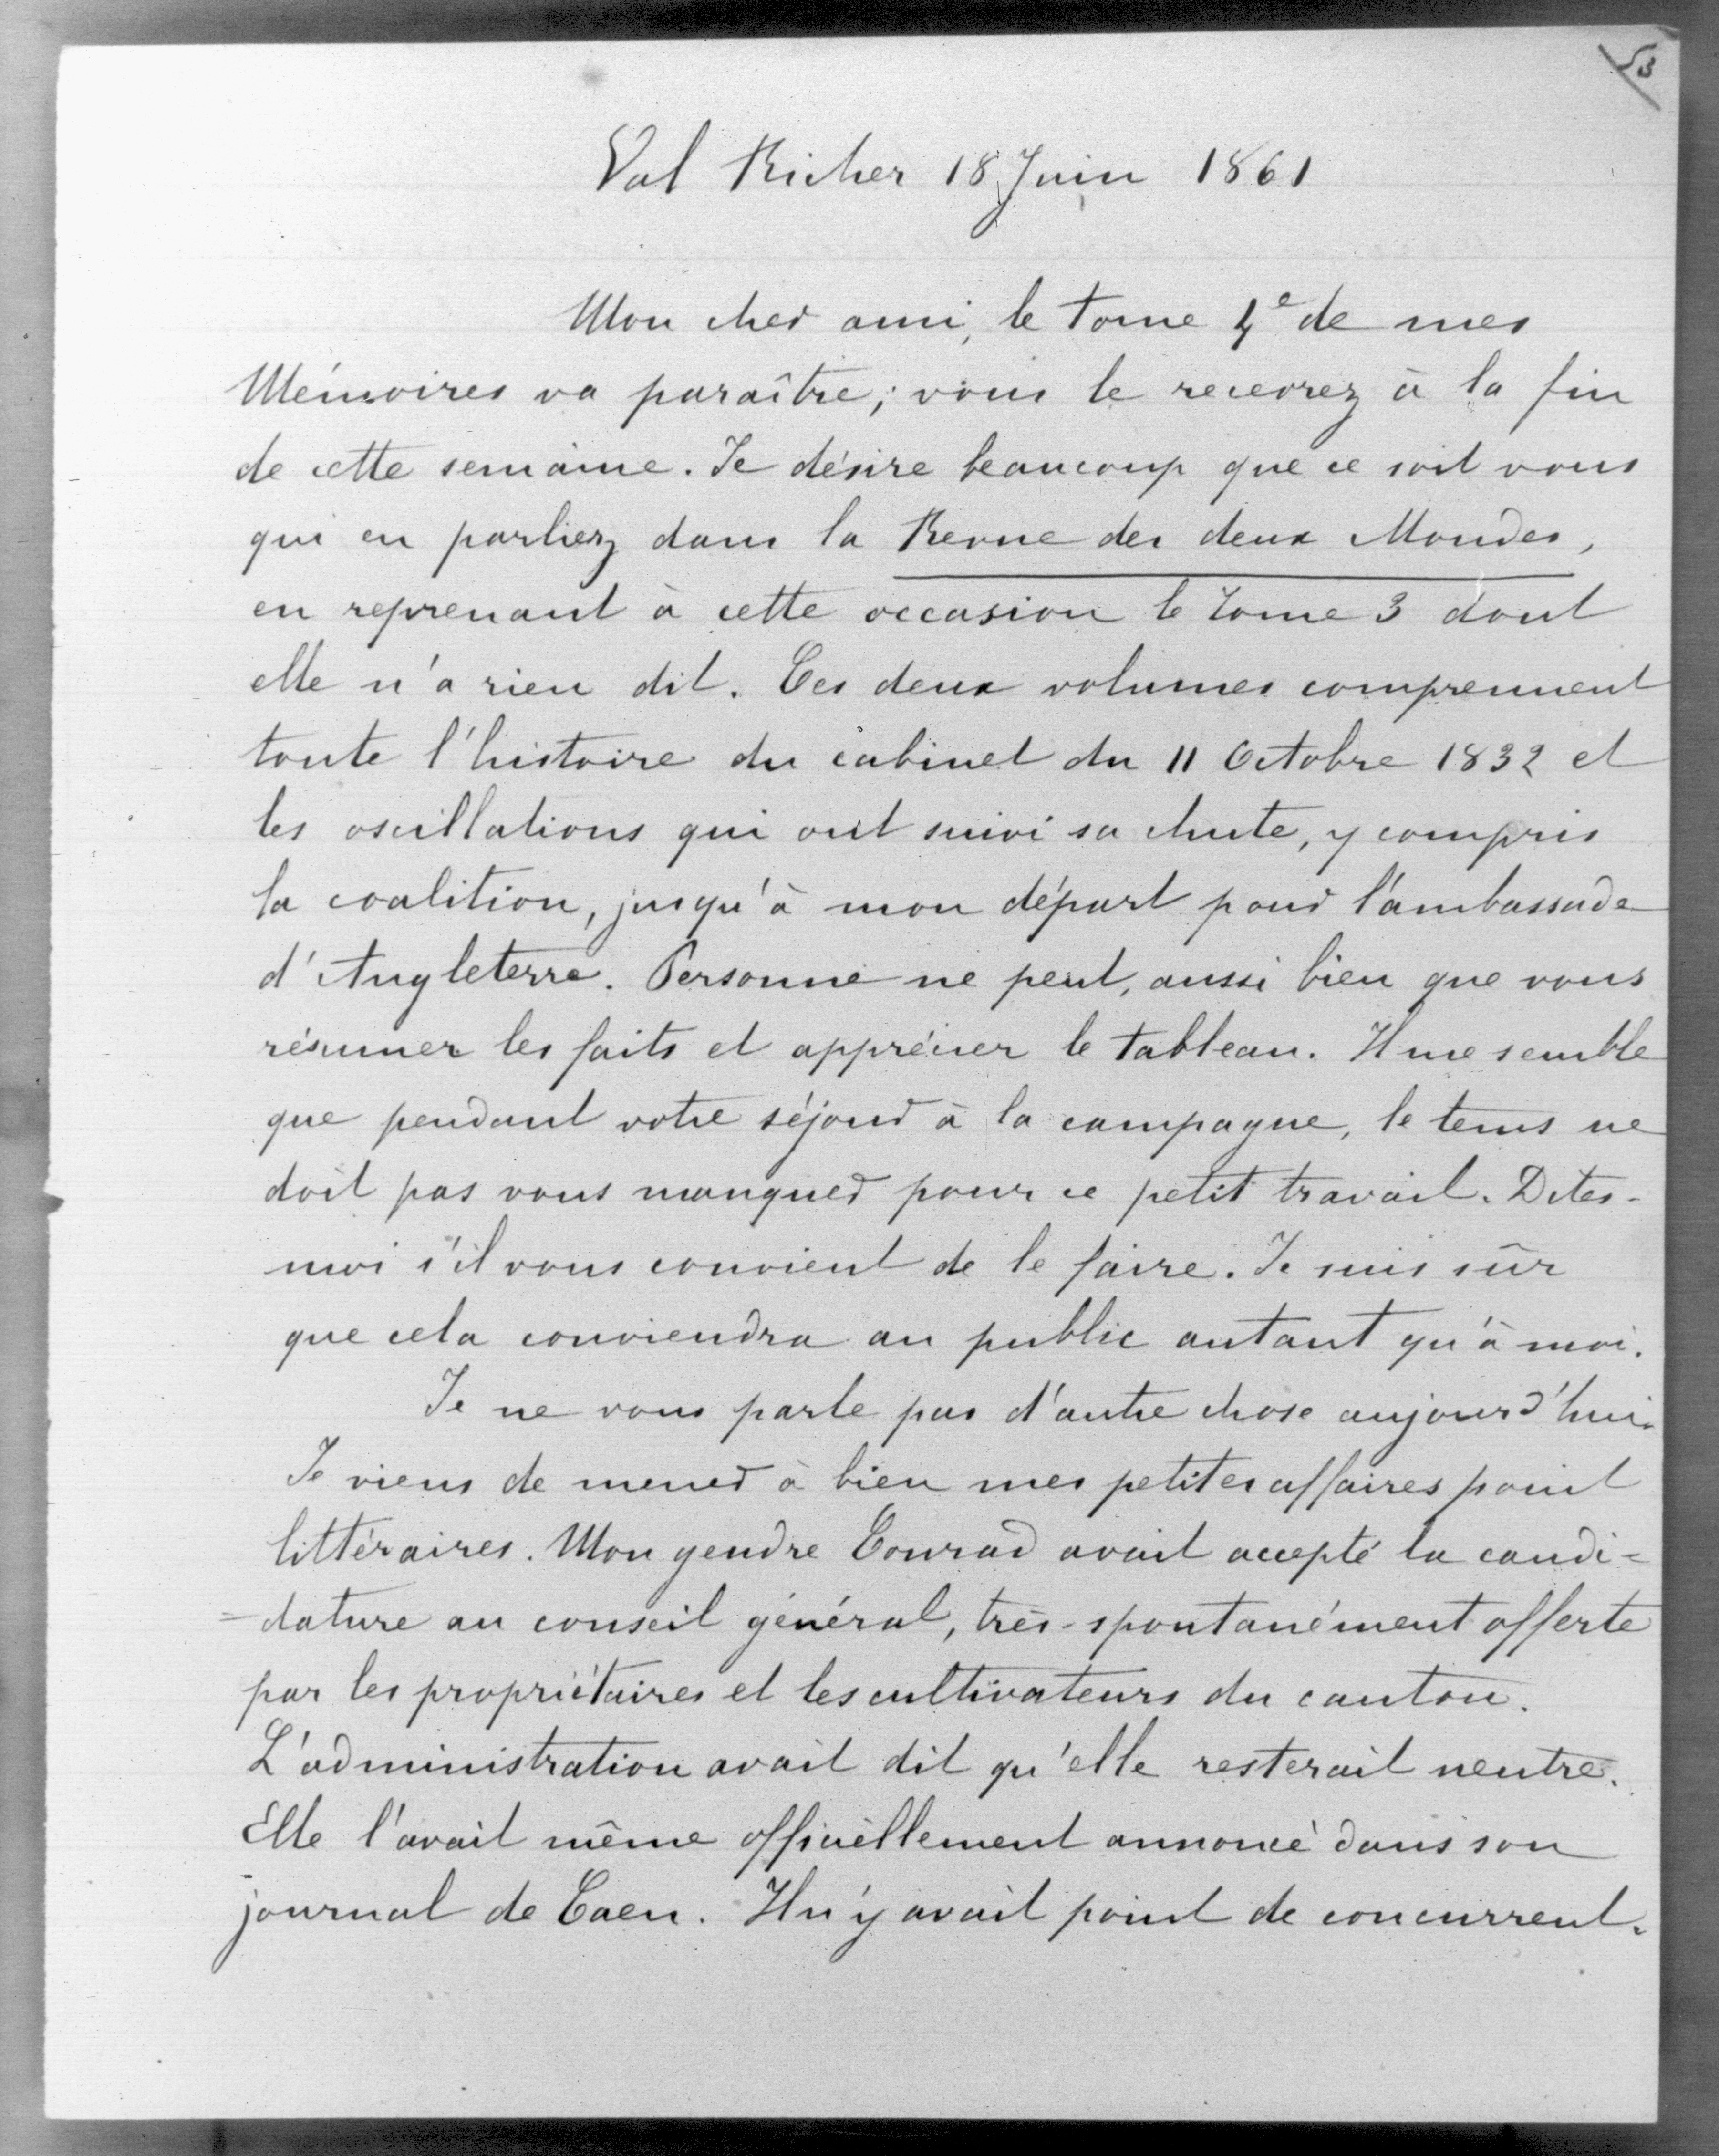 53
Val Richer 18 Juin 1861
Mon cher ami, le tome 4e de mes
Mémoires va paraître; vous le recevrez à la fin
de cette semaine. Je désire beaucoup que ce soit vous
qui en parliez dans la Revue des deux Mondes,
en reprenant à cette occasion le tome 3 dont
elle n'a rien dit. Ces deux volumes comprennent
toute l'histoire du cabinet du 11 Octobre 1832 et
les oscillations qui ont suivi sa chute, y compris
la coalition, jusqu'à mon départ pour l'ambassade
d'Angleterre. Personne ne peut, aussi bien que vous
résumer les faits et apprécier le tableau. Il me semble
que pendant votre séjour à la campagne, le tems ne
doit pas vous manquer pour ce petit travail. Dites-
moi s'il vous convient de le faire. Je suis sûr
que cela conviendra au public autant qu'à moi.
Je ne vous parle pas d'autre chose aujourd'hui.
Je viens de mener à bien mes petites affaires point
littéraires. Mon gendre Conrad avait accepté la candi=
=dature au conseil général, très-spontanément offerte
par les propriétaires et les cultivateurs du canton.
L'administration avait dit qu'elle resterait neutre.
Elle l'avait même officiellement annoncé dans son
journal de Caen. Il n'y avait point de concurrent.